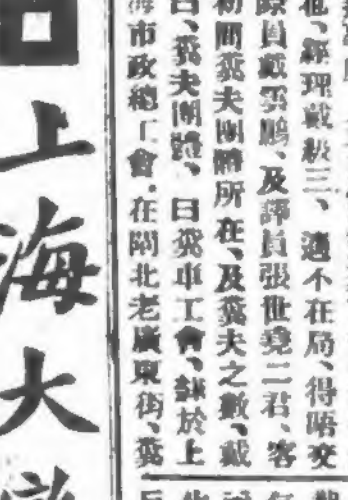 也、經理戴毅三、適不在局、得晤交
際員戴雲鵬、及譯員張世堯二君、客
初問糞夫團體所在、及糞夫之數、戴
曰、糞夫團體、曰糞車工會、隸於上
海市政總工會、在閘北老廣東街、糞
上海大